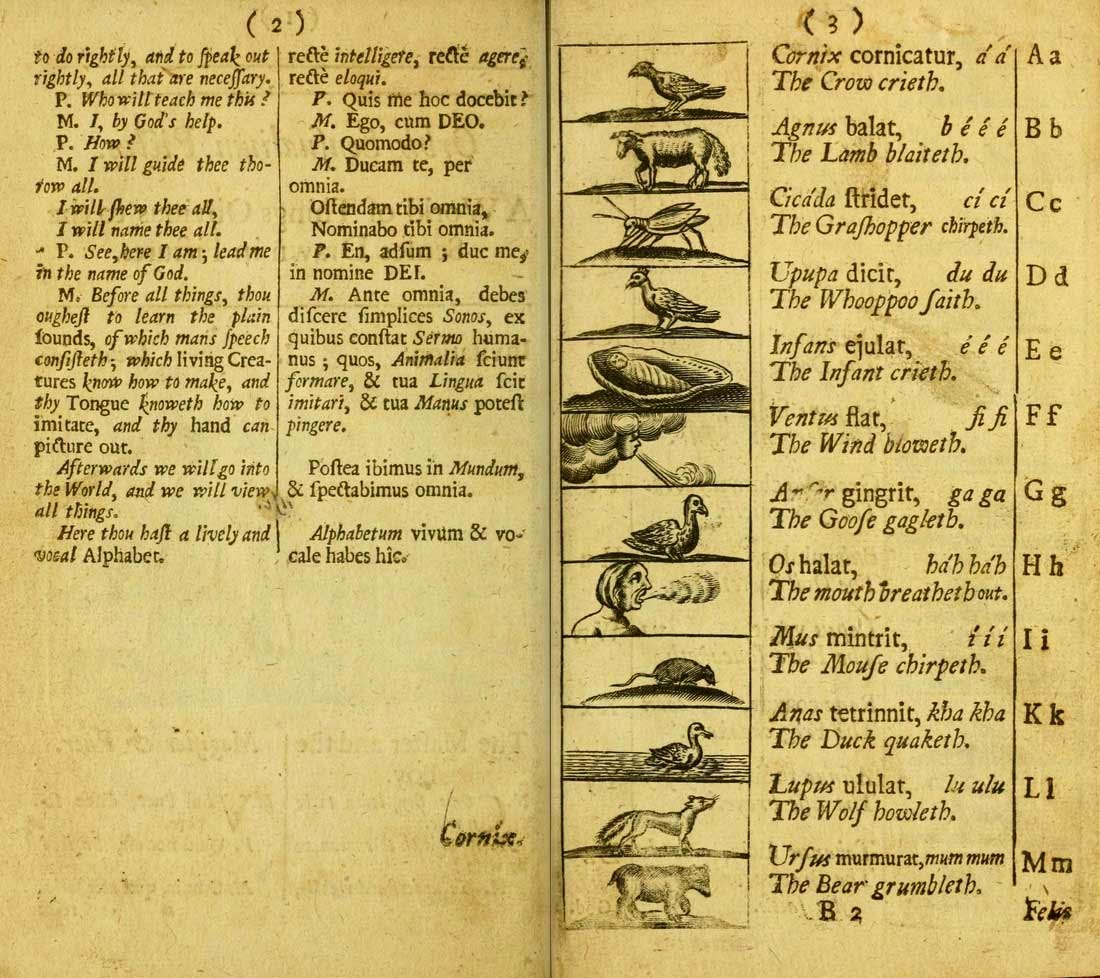 ( 2 )
to do rightly, and to ſpeak out
rightly, all that are neceſſary.
P. Who will teach me this ?
M. I, by God's help.
P. How ?
M. I will guide thee tho-
row all.
I will ſhew thee all,
I will name thee all.
P. See, here I am ; lead me
in the name of God.
M. Before all things, thou
ougheſt to learn the plain
ſounds, of which mans ſpeech
conſiſteth ; which living Crea-
tures know how to make, and
thy Tongue knoweth how to
imitate, and thy hand can
picture out.
Afterwards we will go into
the World, and we will view
all things.
Here thou haſt a lively and
vocal Alphabet.
rectè intelligere, rectè agere,
rectè eloqui.
P. Quis me hoc docebit ?
M. Ego, cum DEO.
P. Quomodo?
M. Ducam te, per
omnia.
Oſtendam tibi omnia,
Nominabo tibi omnia.
P. En, adſum ; duc me,
in nomine DEI.
M. Ante omnia, debes
diſcere ſimplices Sonos, ex
quibus conſtat Sermo huma-
nus ; quos, Animalia ſciunt
formare, & tua Lingua ſcit
imitari, & tua Manus poteſt
pingere.
Poſtea ibimus in Mundum,
& ſpectabimus omnia.
Alphabetum vivum & vo-
cale habes hîc.
Cornix.
( 3 )
Cornix cornicatur, á á A a
The Crow crieth.
Agnus balat, b é é é B b
The Lamb blaiteth.
Cicáda ſtridet, cí cí C c
The Graſhopper chirpeth.
Upupa dicit, du du D d
The Whooppoo ſaith.
Infans ejulat, é é é E e
The Infant crieth.
Ventus flat, fi fi F f
The Wind bloweth.
gingrit, ga ga G g
The Gooſe gagleth.
Os halat, há'h há'h H h
The mouth breatheth out.
Mus mintrit, í í í I i
The Mouſe chirpeth.
Anas tetrinnit, kha kha K k
The Duck quaketh.
Lupus ululat, lu ulu L l
The Wolf howleth.
Urſus murmurat, mum mum M m
The Bear grumbleth.
B 2 Felis